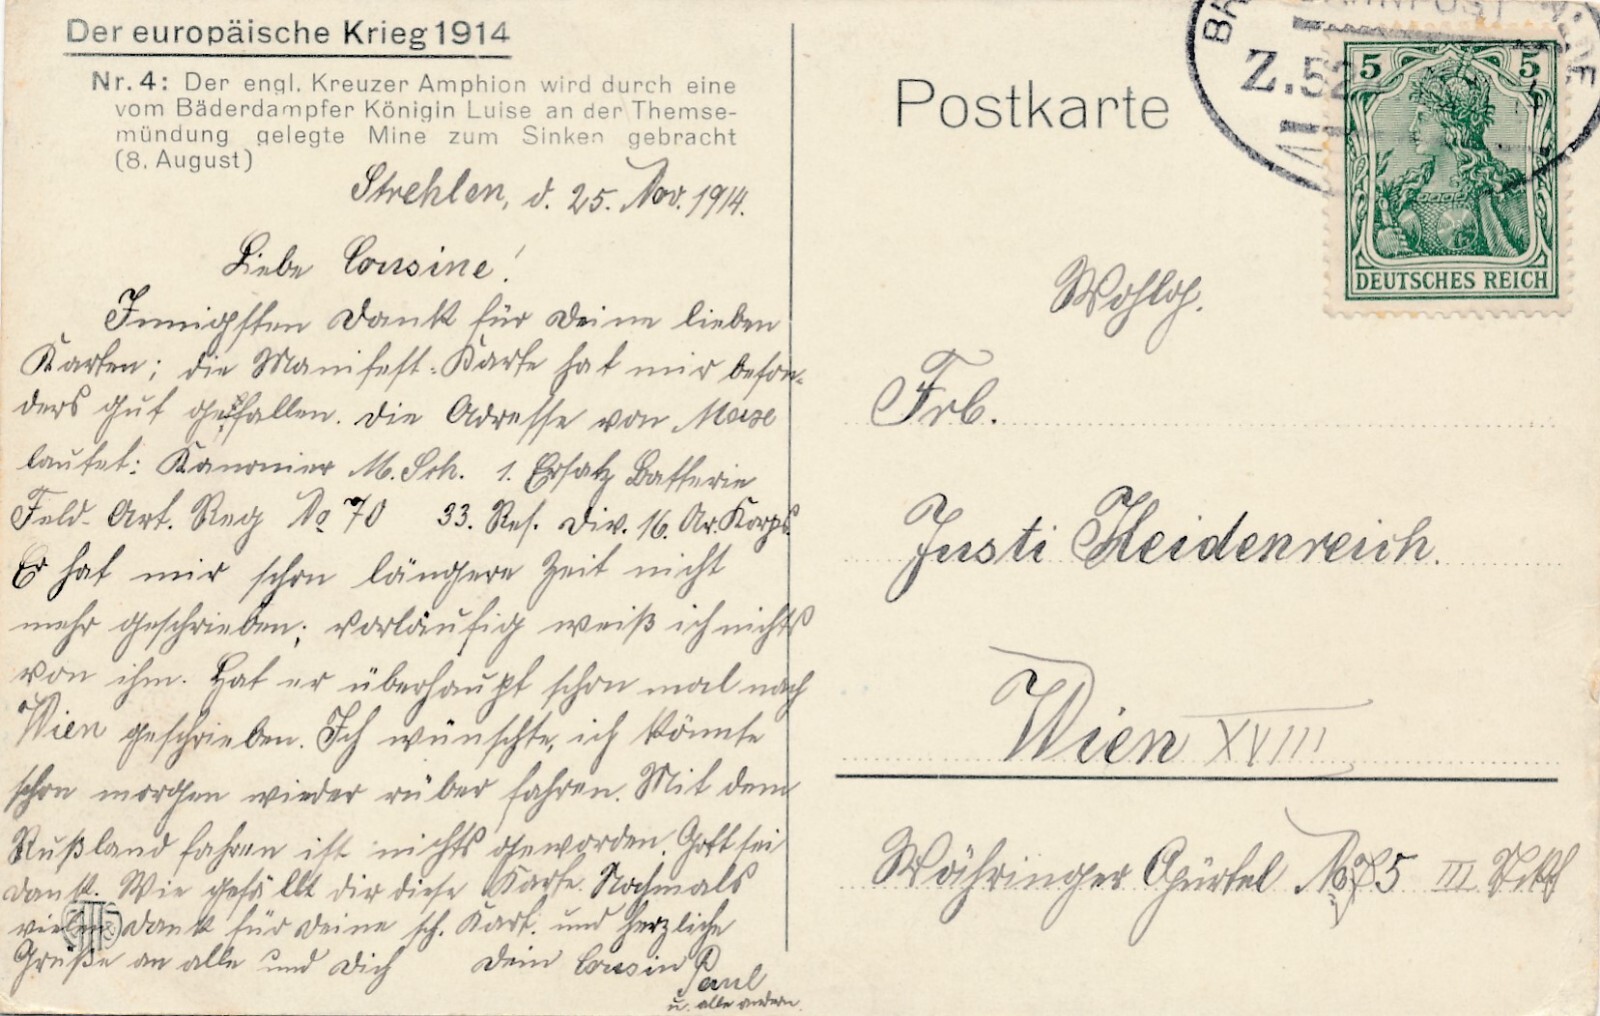 Der europäische Krieg 1914
Nr. 4: Der engl. Kreuzer Amphion wird durch eine
vom Bäderdampfer Königin Luise an der Themse-
mündung gelegte Mine zum Sinken gebracht
(8. August)
Strehlen, d. 25. Nov. 1914.
Liebe Cousine!
Innigsten Dank für Deine lieben
Karten; die Manifest-Karte hat mir beson-
ders gut gefallen. Die Adresse von
lautet: Kanonier M. Sch. 1. Ersatz Batterie
Feld-Art. Reg No 70 33. Res. Div. 16. Ar. Korps.
Er hat mir schon längere Zeit nicht
mehr geschrieben; vorläufig weiß ich nichts
von ihm. Hat er überhaupt schon mal nach
Wien geschrieben. Ich wünschte, ich könnte
schon morgen wieder rüber fahren. Mit dem
Rußland fahren ist nichts geworden. Gott sei
dank. Wie gefällt dir diese Karte. Nochmals
vielen Dank für Deine sch. Kart. und herzliche
Grüße an alle und Dich Dein Cousin Paul
u. alle andern.
Postkarte
Z.52
5 5
DEUTSCHES REICH
Wohlg.
Frl.
Justi Heidenreich.
Wien XVIII
Währinger Gürtel No 75 III